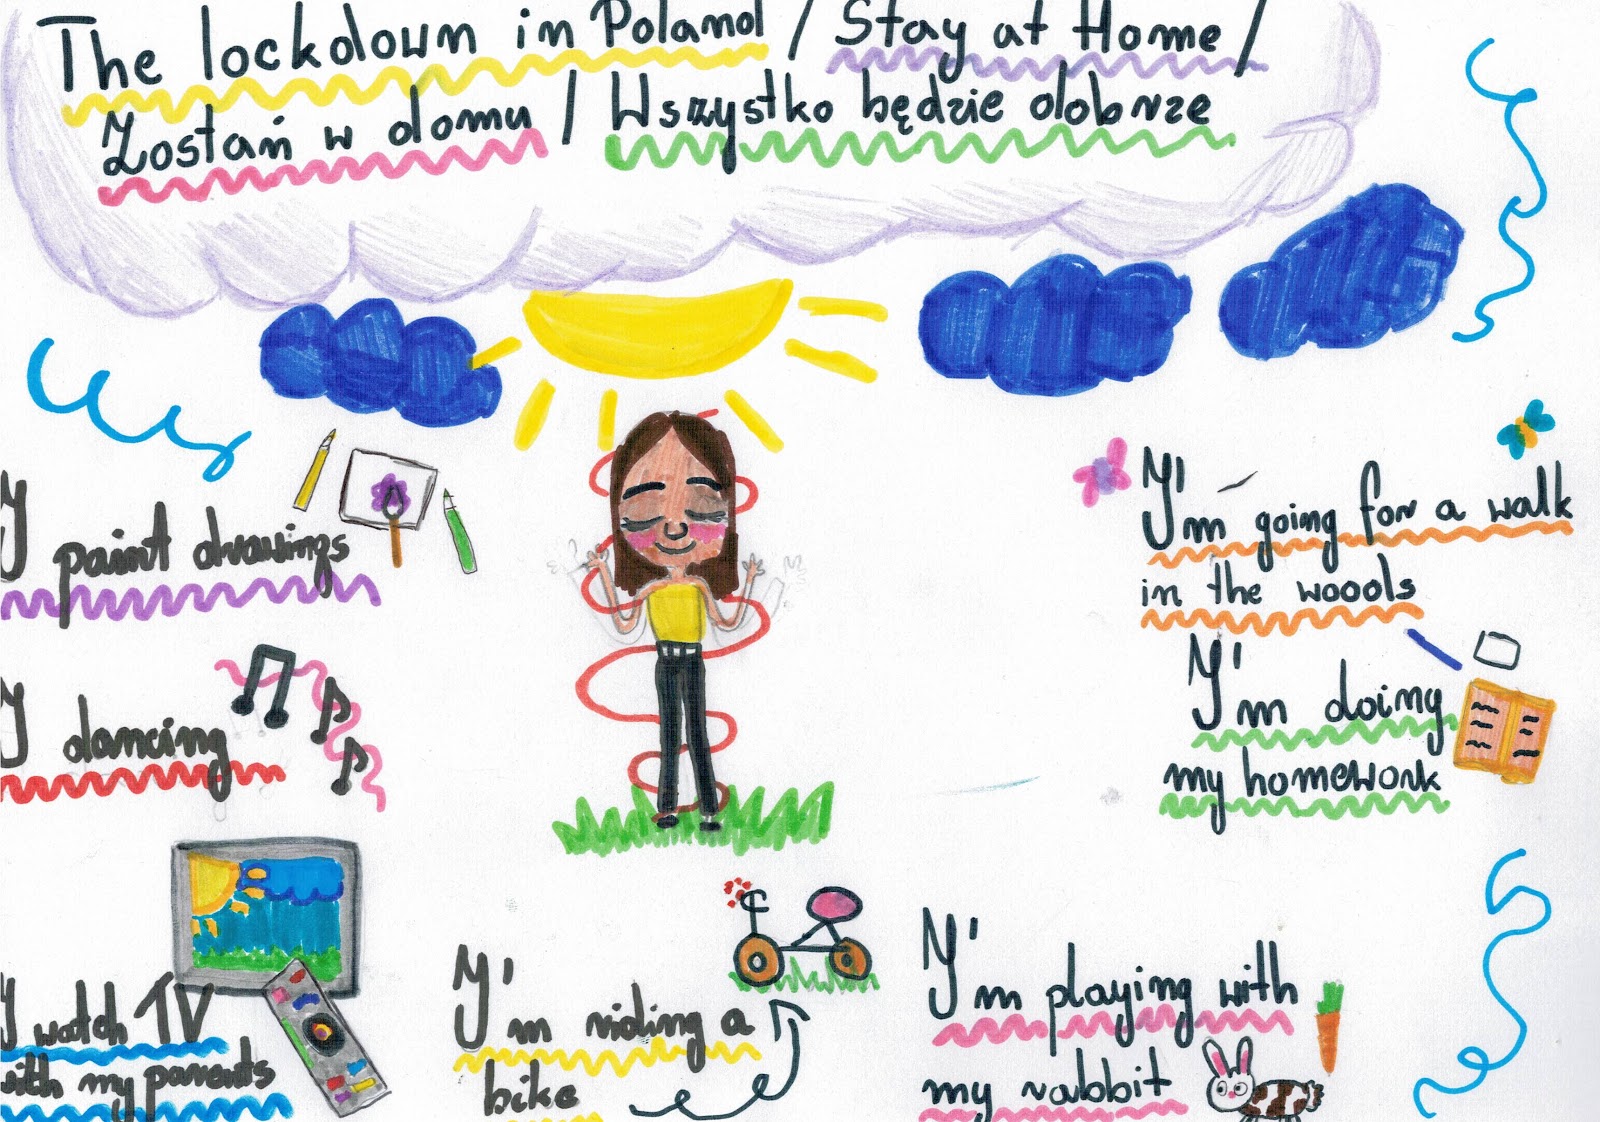 The lockdown in Poland / Stay at Home /
Zostań w domu / Wszystko będzie dobrze
I paint drawings
I dancing
I watch TV
with my parents
I'm riding a
bike
I'm going for a walk
in the woods
I'm doing
my homework
I'm playing with
my rabbit